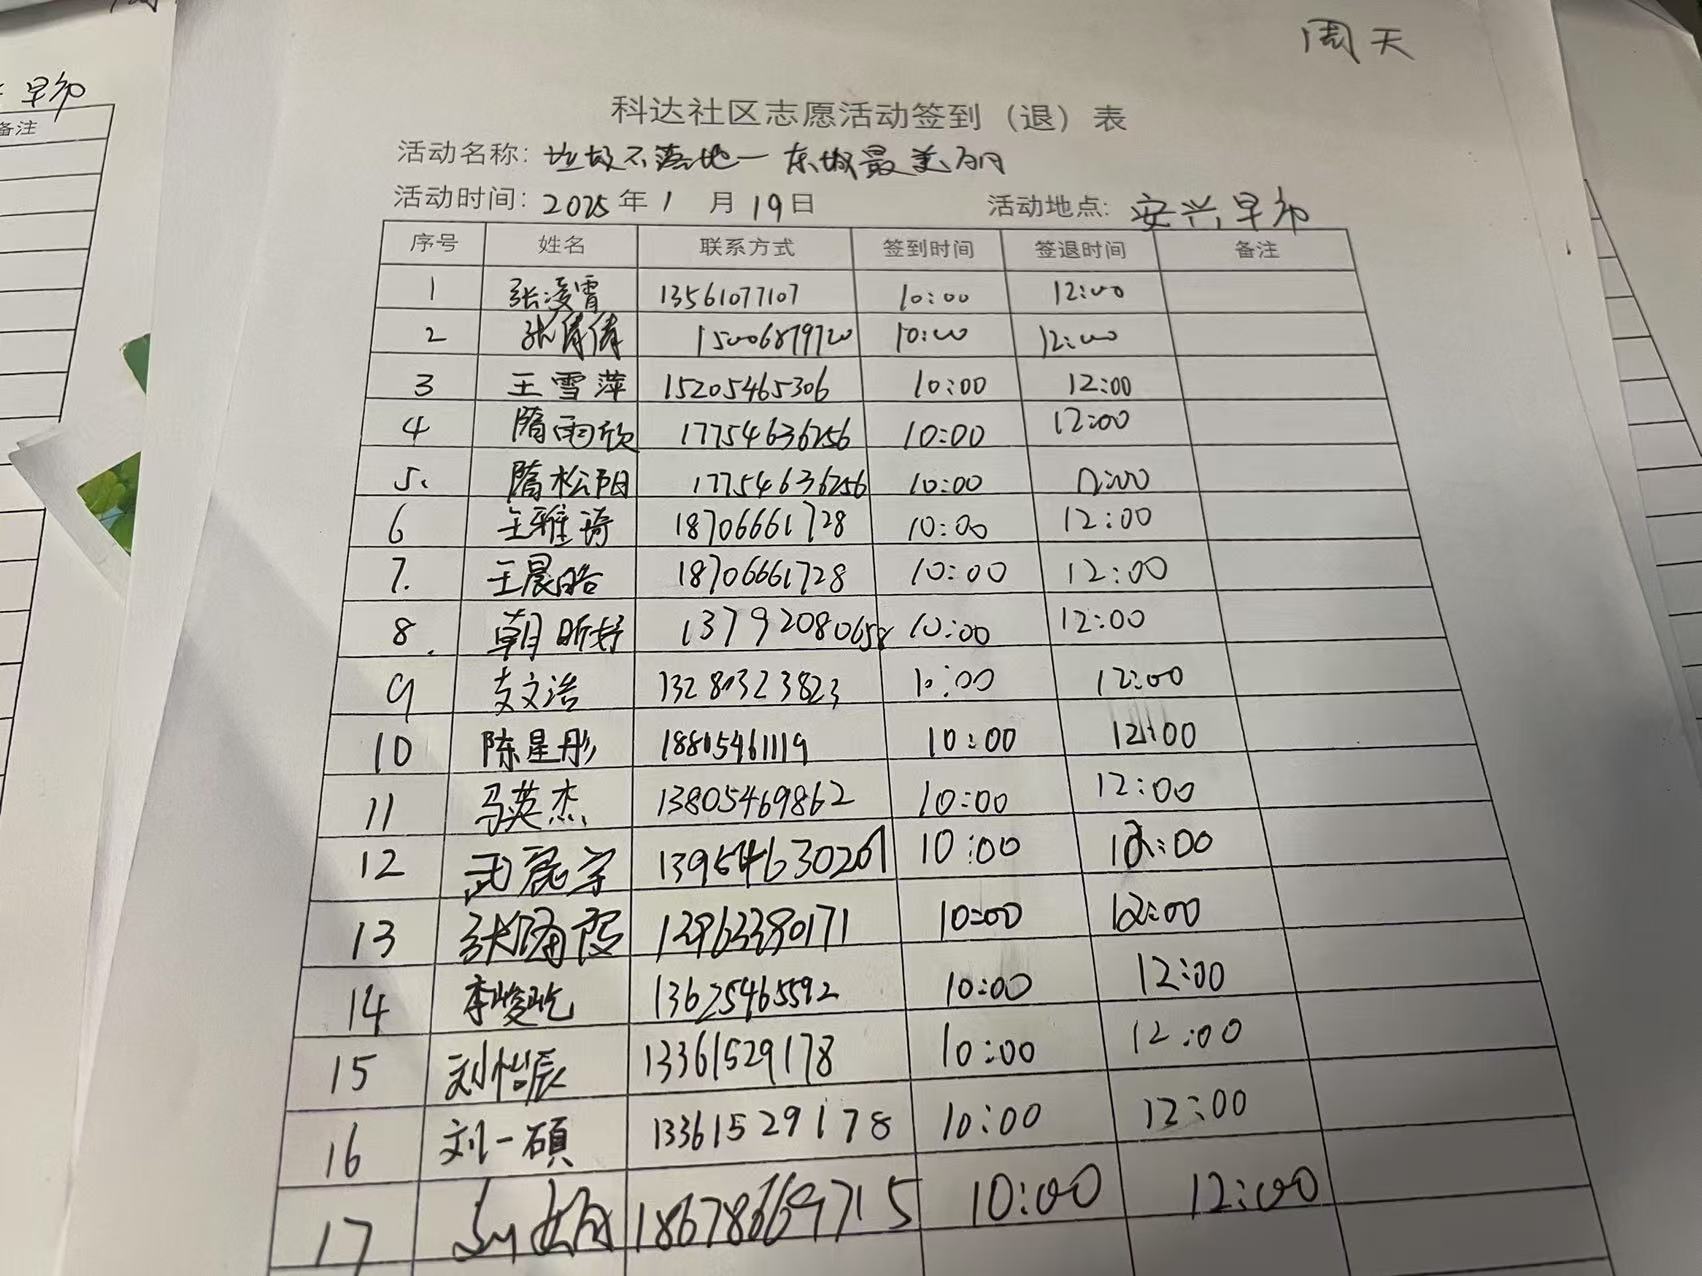 周天
早市
备注
科达社区志愿活动签到（退）表
活动名称：垃圾不落地一东城最美丽
活动时间：2025年1月19日 活动地点：安兴早市
序号 姓名 联系方式 签到时间 签退时间 备注
1 张凌霄 13561077107 10:00 12:00
2 张倩倩 15006879720 10:00 12:00
3 王雪萍 15205465306 10:00 12:00
4 隋雨欣 17754636256 10:00 12:00
5. 隋松阳 17754636256 10:00 12:00
6 王雅琦 18706661728 10:00 12:00
7. 王晨皓 18706661728 10:00 12:00
8. 朝昕妤 13792080658 10:00 12:00
9 支文浩 13280323823 10:00 12:00
10 陈星彤 18805461119 10:00 12:00
11 马英杰 13805469862 10:00 12:00
12 武宸宇 13954630201 10:00 12:00
13 张 霞 10:00 12:00
14 李峻屹 13625465592 10:00 12:00
15 刘怡辰 13361529178 10:00 12:00
16 刘一硕 13361529178 10:00 12:00
17 18678669715 10:00 12:00